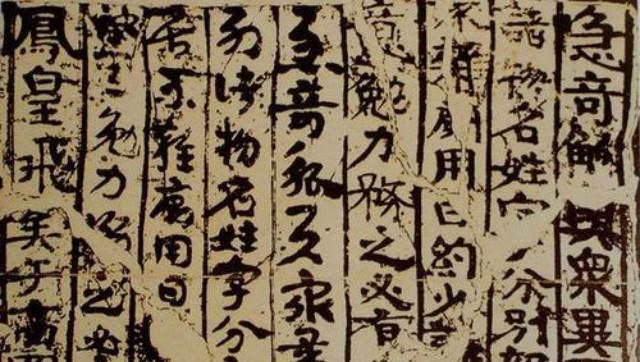 急奇觚與衆異
諸物名姓字分別部
雜廁用日約少誠
意勉力務之必有
急奇觚與衆異
列諸物名姓字分
居不雜廁用日
快意勉力務之必
鳳皇飛矣于高